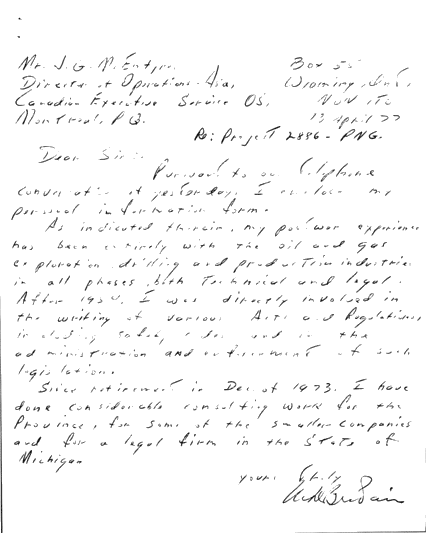 Mr. J. G. M. Entyre. Box 55
Director of Operations - Asia, Wyoming, Ont.
Canadian Executive Service O's, NON 1TO
Montreal, P Q. 13 April 77
Re: Project 2886 - PNG.
Dear Sir:
Pursuant to our telephone
conversation of yesterday, I enclose my
personal information form.
As indicated therein, my postwar experience
has been entirely with the oil and gas
exploration, drilling and production industries
in all phases, both technical and legal.
After 1954, I was directly involved in
the writing of various Acts and Regulations,
including safety and in the
administration and enforcement of such
legislation.
Since retirement in Dec of 1973. I have
done considerable consulting work for the
Province, for some of the smaller companies
and for a legal firm in the State of
Michigan
yours truly